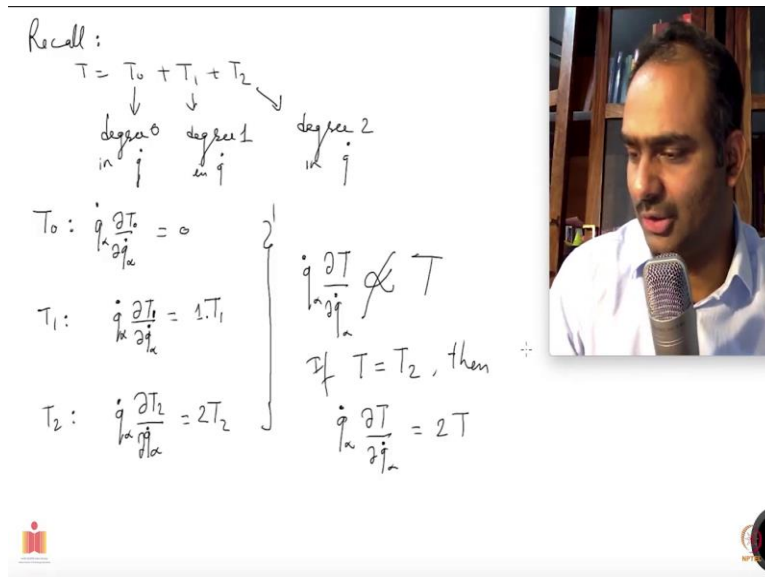 Recall:
T = T₀ + T₁ + T₂
degree 0 in q̇
degree 1 in q̇
degree 2 in q̇
T₀ : q̇_α ∂T₀/∂q̇_α = 0
T₁ : q̇_α ∂T₁/∂q̇_α = 1.T₁
T₂ : q̇_α ∂T₂/∂q̇_α = 2T₂
q̇_α ∂T/∂q̇_α ∝̸ T
If T = T₂, then
q̇_α ∂T/∂q̇_α = 2T